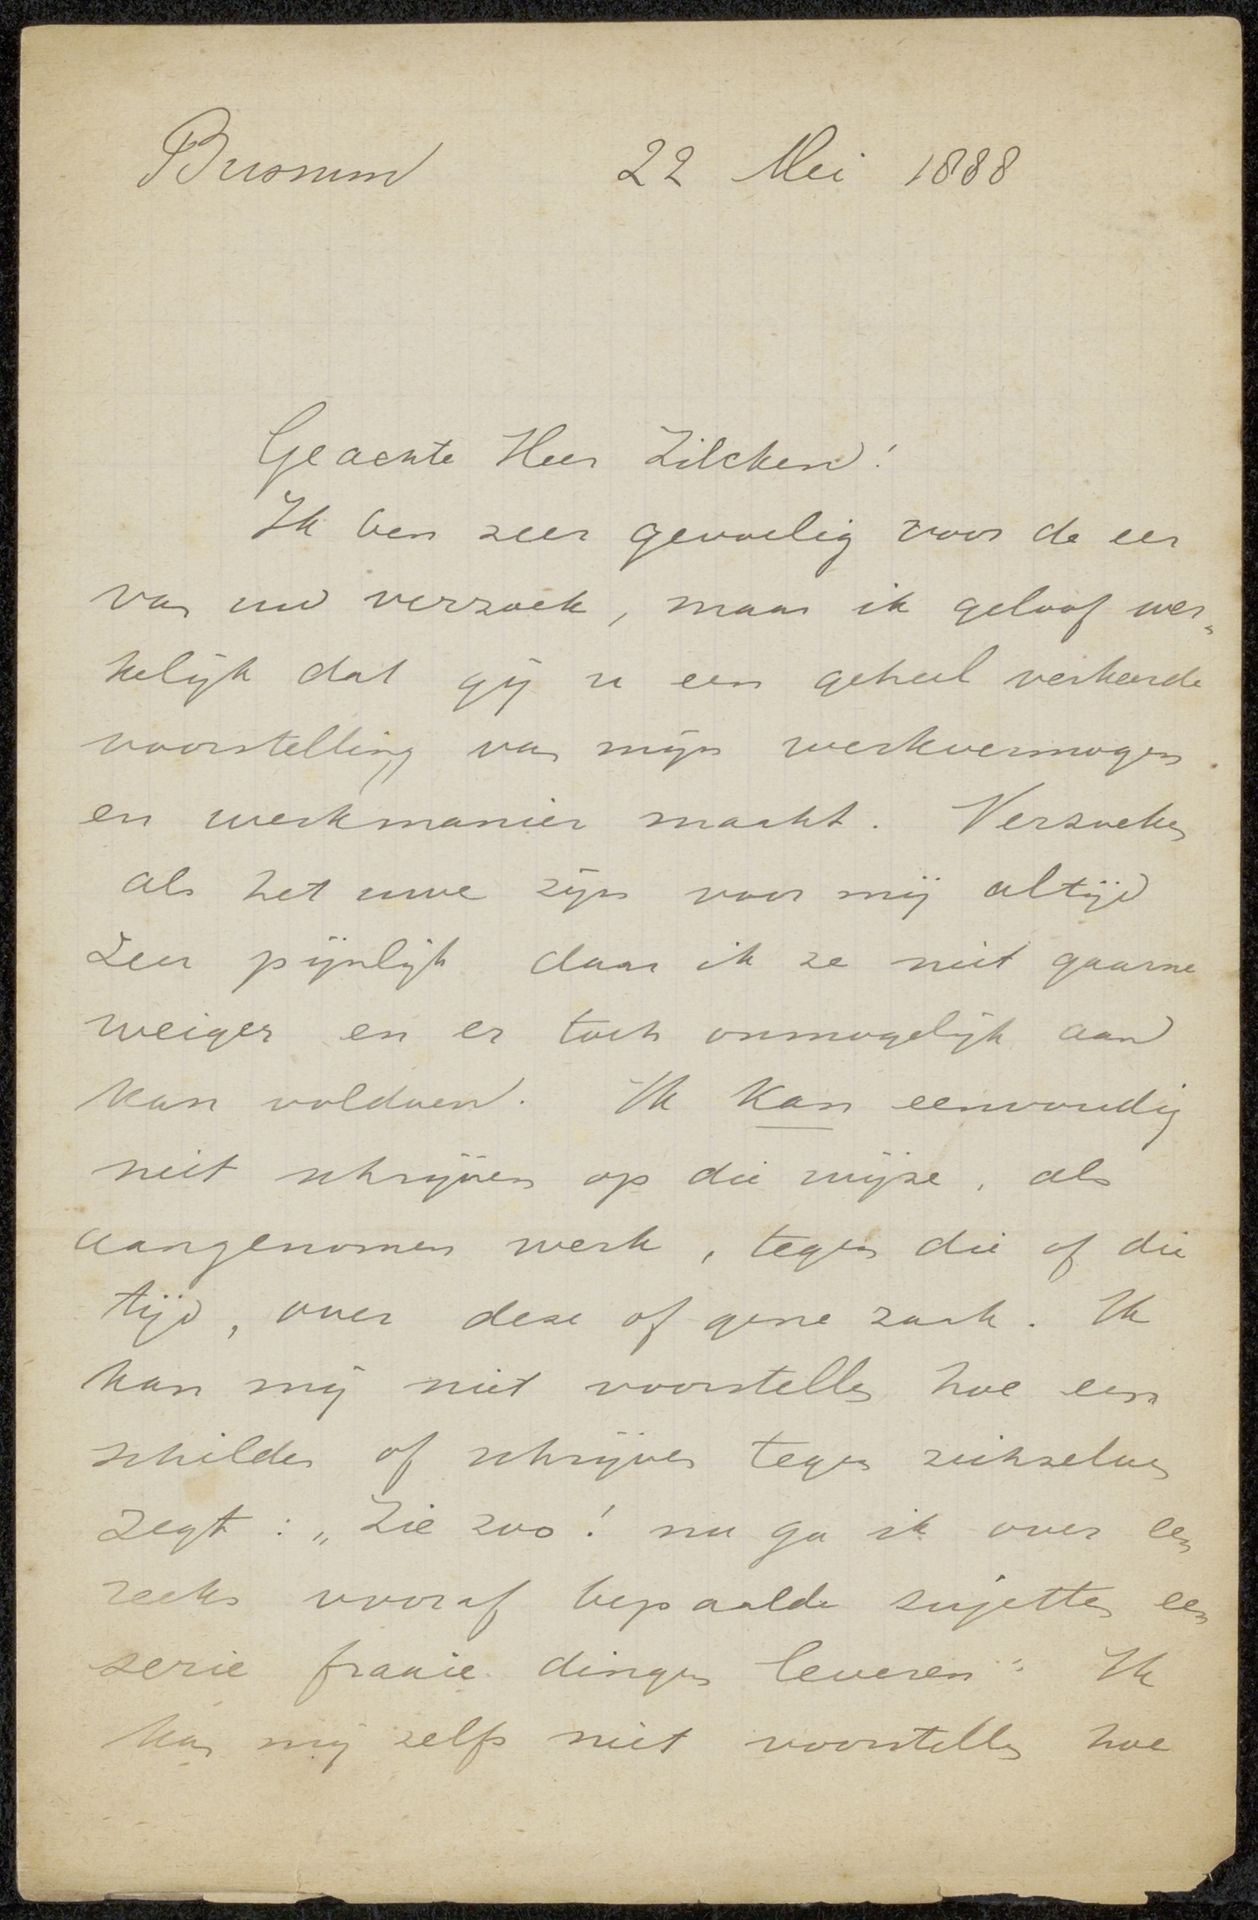 Bussum 22 Mei 1888
Geachte Heer Zilcken!
Ik ben zeer gevoelig voor de eer
van uw verzoek, maar ik geloof wer-
kelijk dat gij u een geheel verkeerde
voorstelling van mijn werkvermogen
en werkmanier maakt. Verzoeken
als het uwe zijn voor mij altijd
zeer pijnlijk daar ik ze niet gaarne
weiger en er toch onmogelijk aan
kan voldoen. Ik kan eenvoudig
niet schrijven op die wijze, als
aangenomen werk, tegen die of die
tijd, over deze of gene zaak. Ik
kan mij niet voorstellen hoe een
schilder of schrijver tegen zichzelven
zegt: „Zie zoo! nu ga ik over een
reeks vooraf bepaalde sujetten een
serie fraaie dingen leveren" Ik
kan mij zelfs niet voorstellen hoe